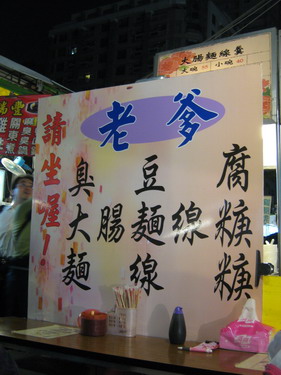 大腸麵線羹
大碗 小碗
老爹
請坐喔！
臭豆腐
大腸麵線焿
麵線焿